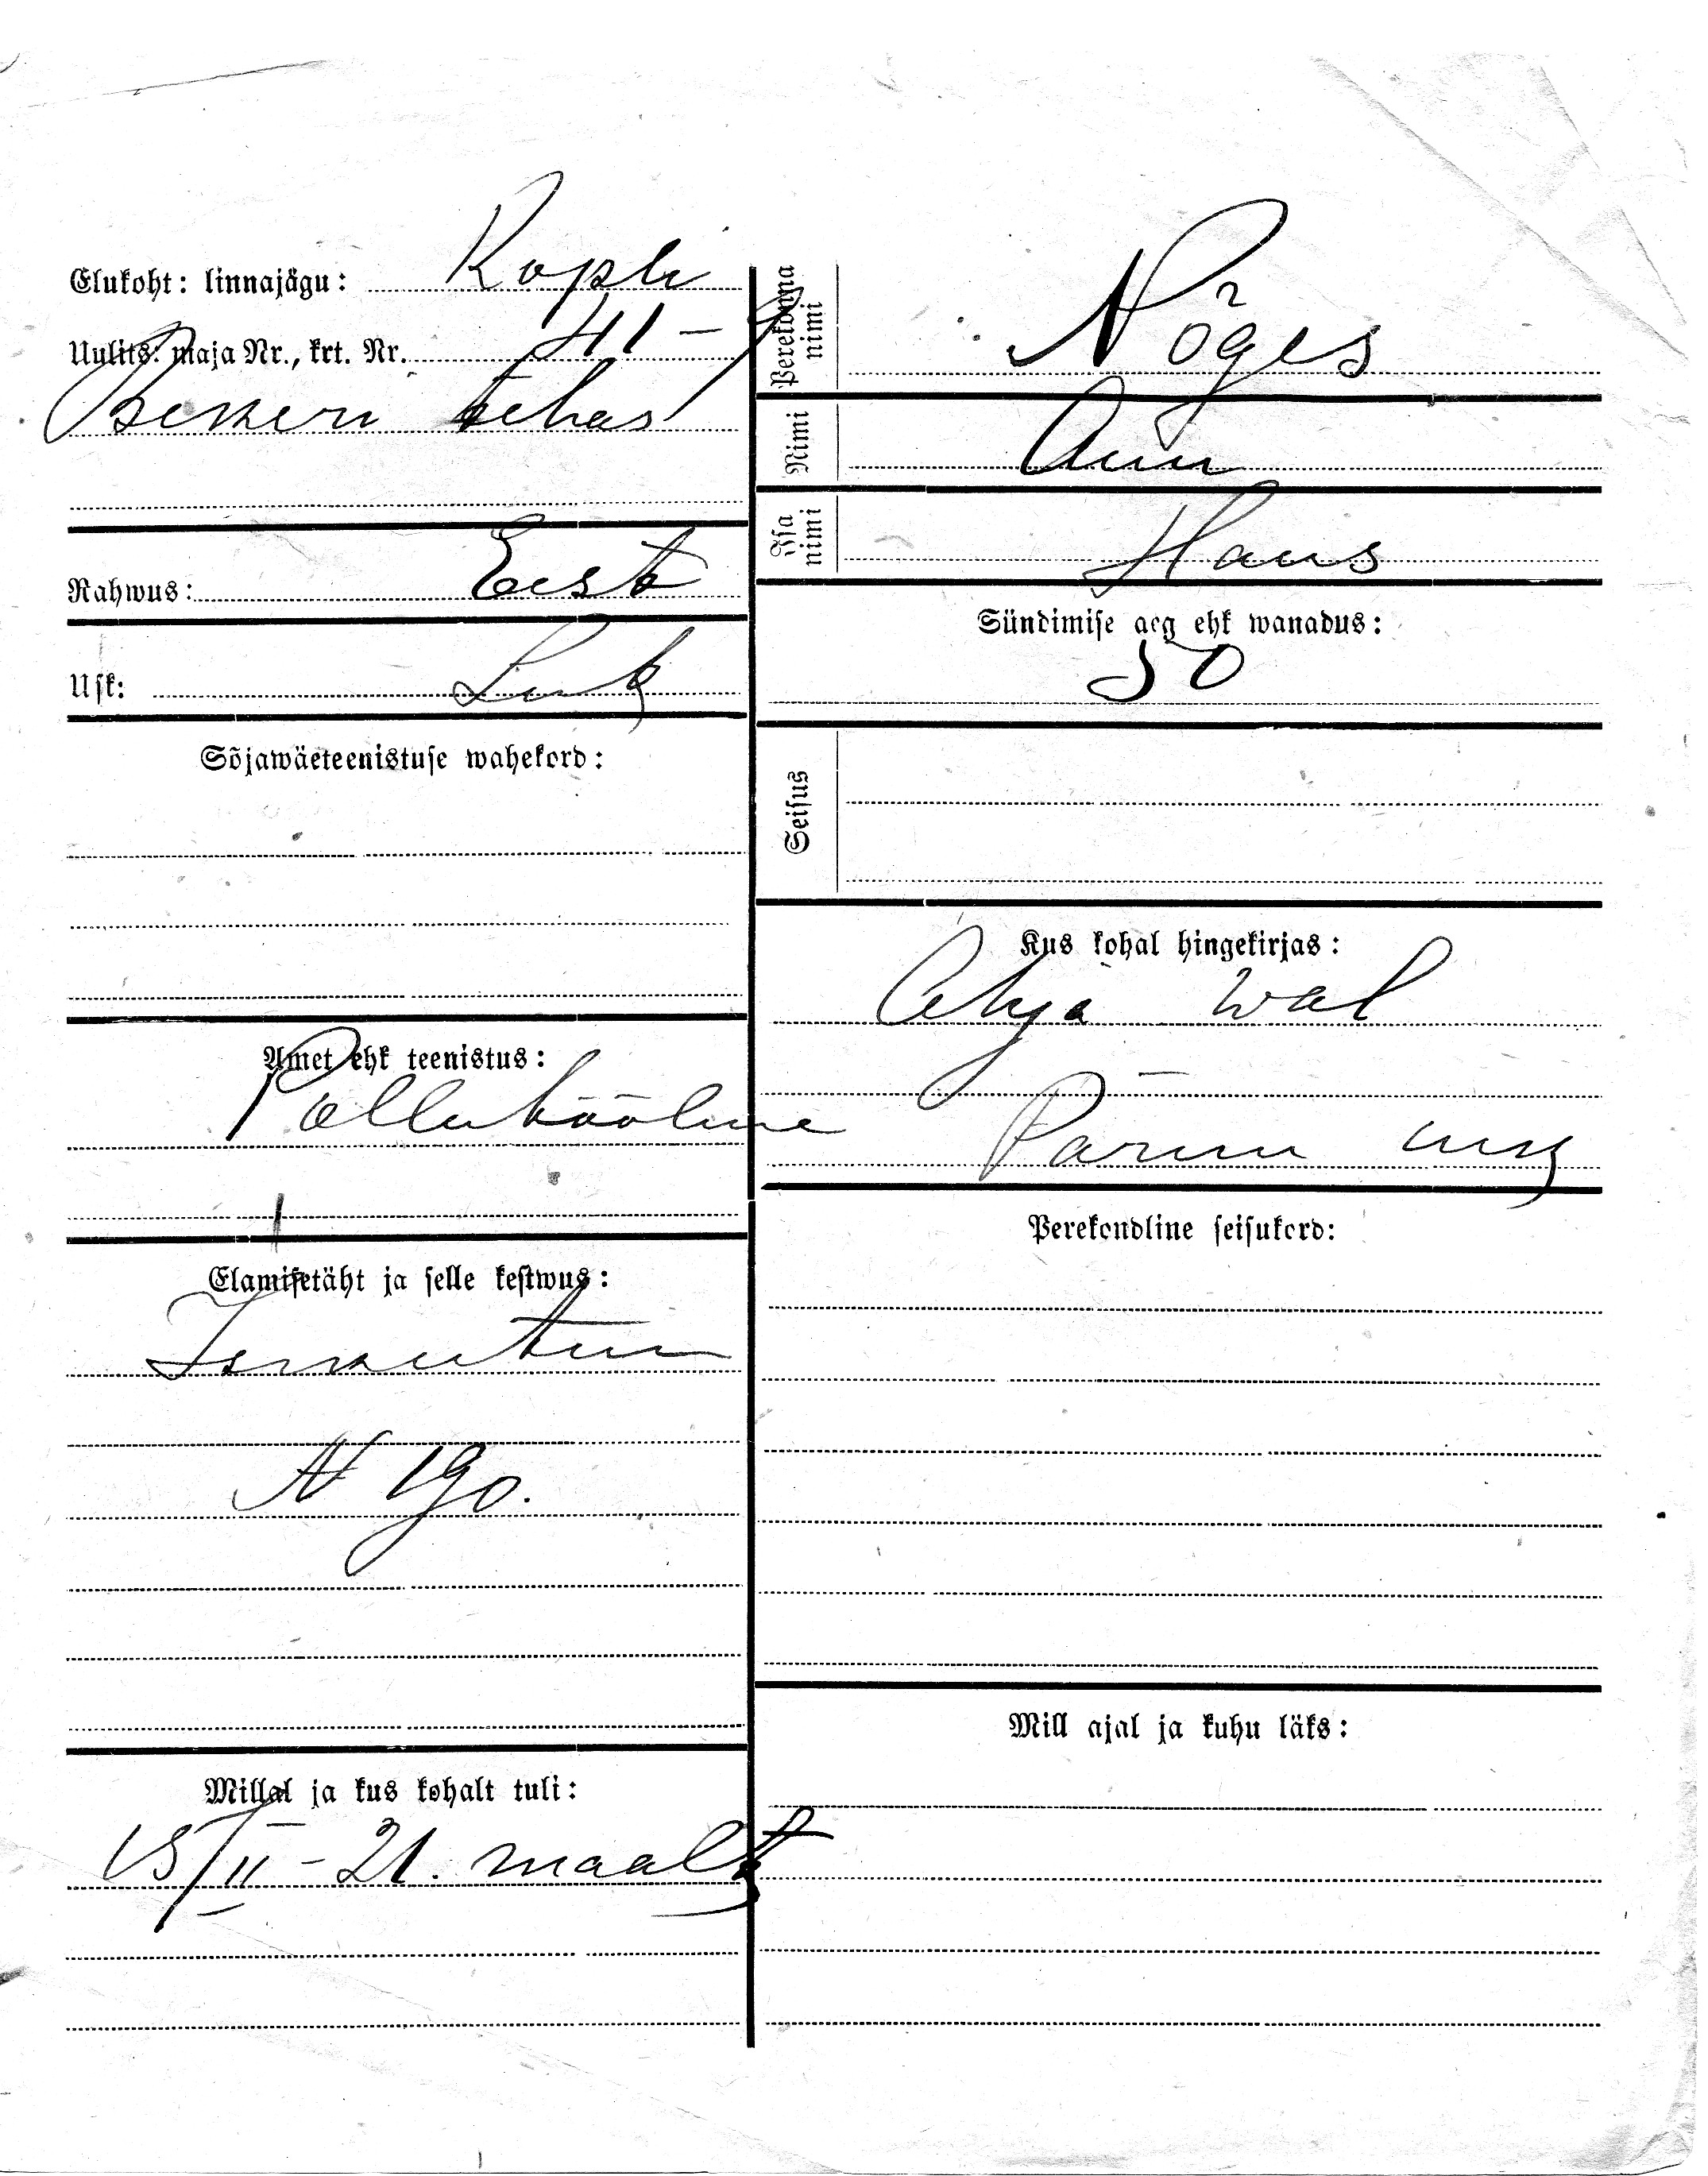 Elukoht: linnajägu: Kopli
Uulits: maja Nr., krt. Nr. 41-9
Bekkeri tehas
Rahwus: Eest
Usk: Luth
Sõjawäeteenistuse wahekord:
Amet ehk teenistus:
Põllutööline
Elamisetäht ja selle kestwus:
Isikutun
N 190.
Millal ja kus kohalt tuli:
15/II-21. maalt
Perekonna nimi Nõges
Nimi Ann
Isa nimi Hans
Sündimise aeg ehk wanadus:
50
Seisus
Kus kohal hingekirjas:
wal
Pärnu mk
Perekondline seisukord:
Mill ajal ja kuhu läks: